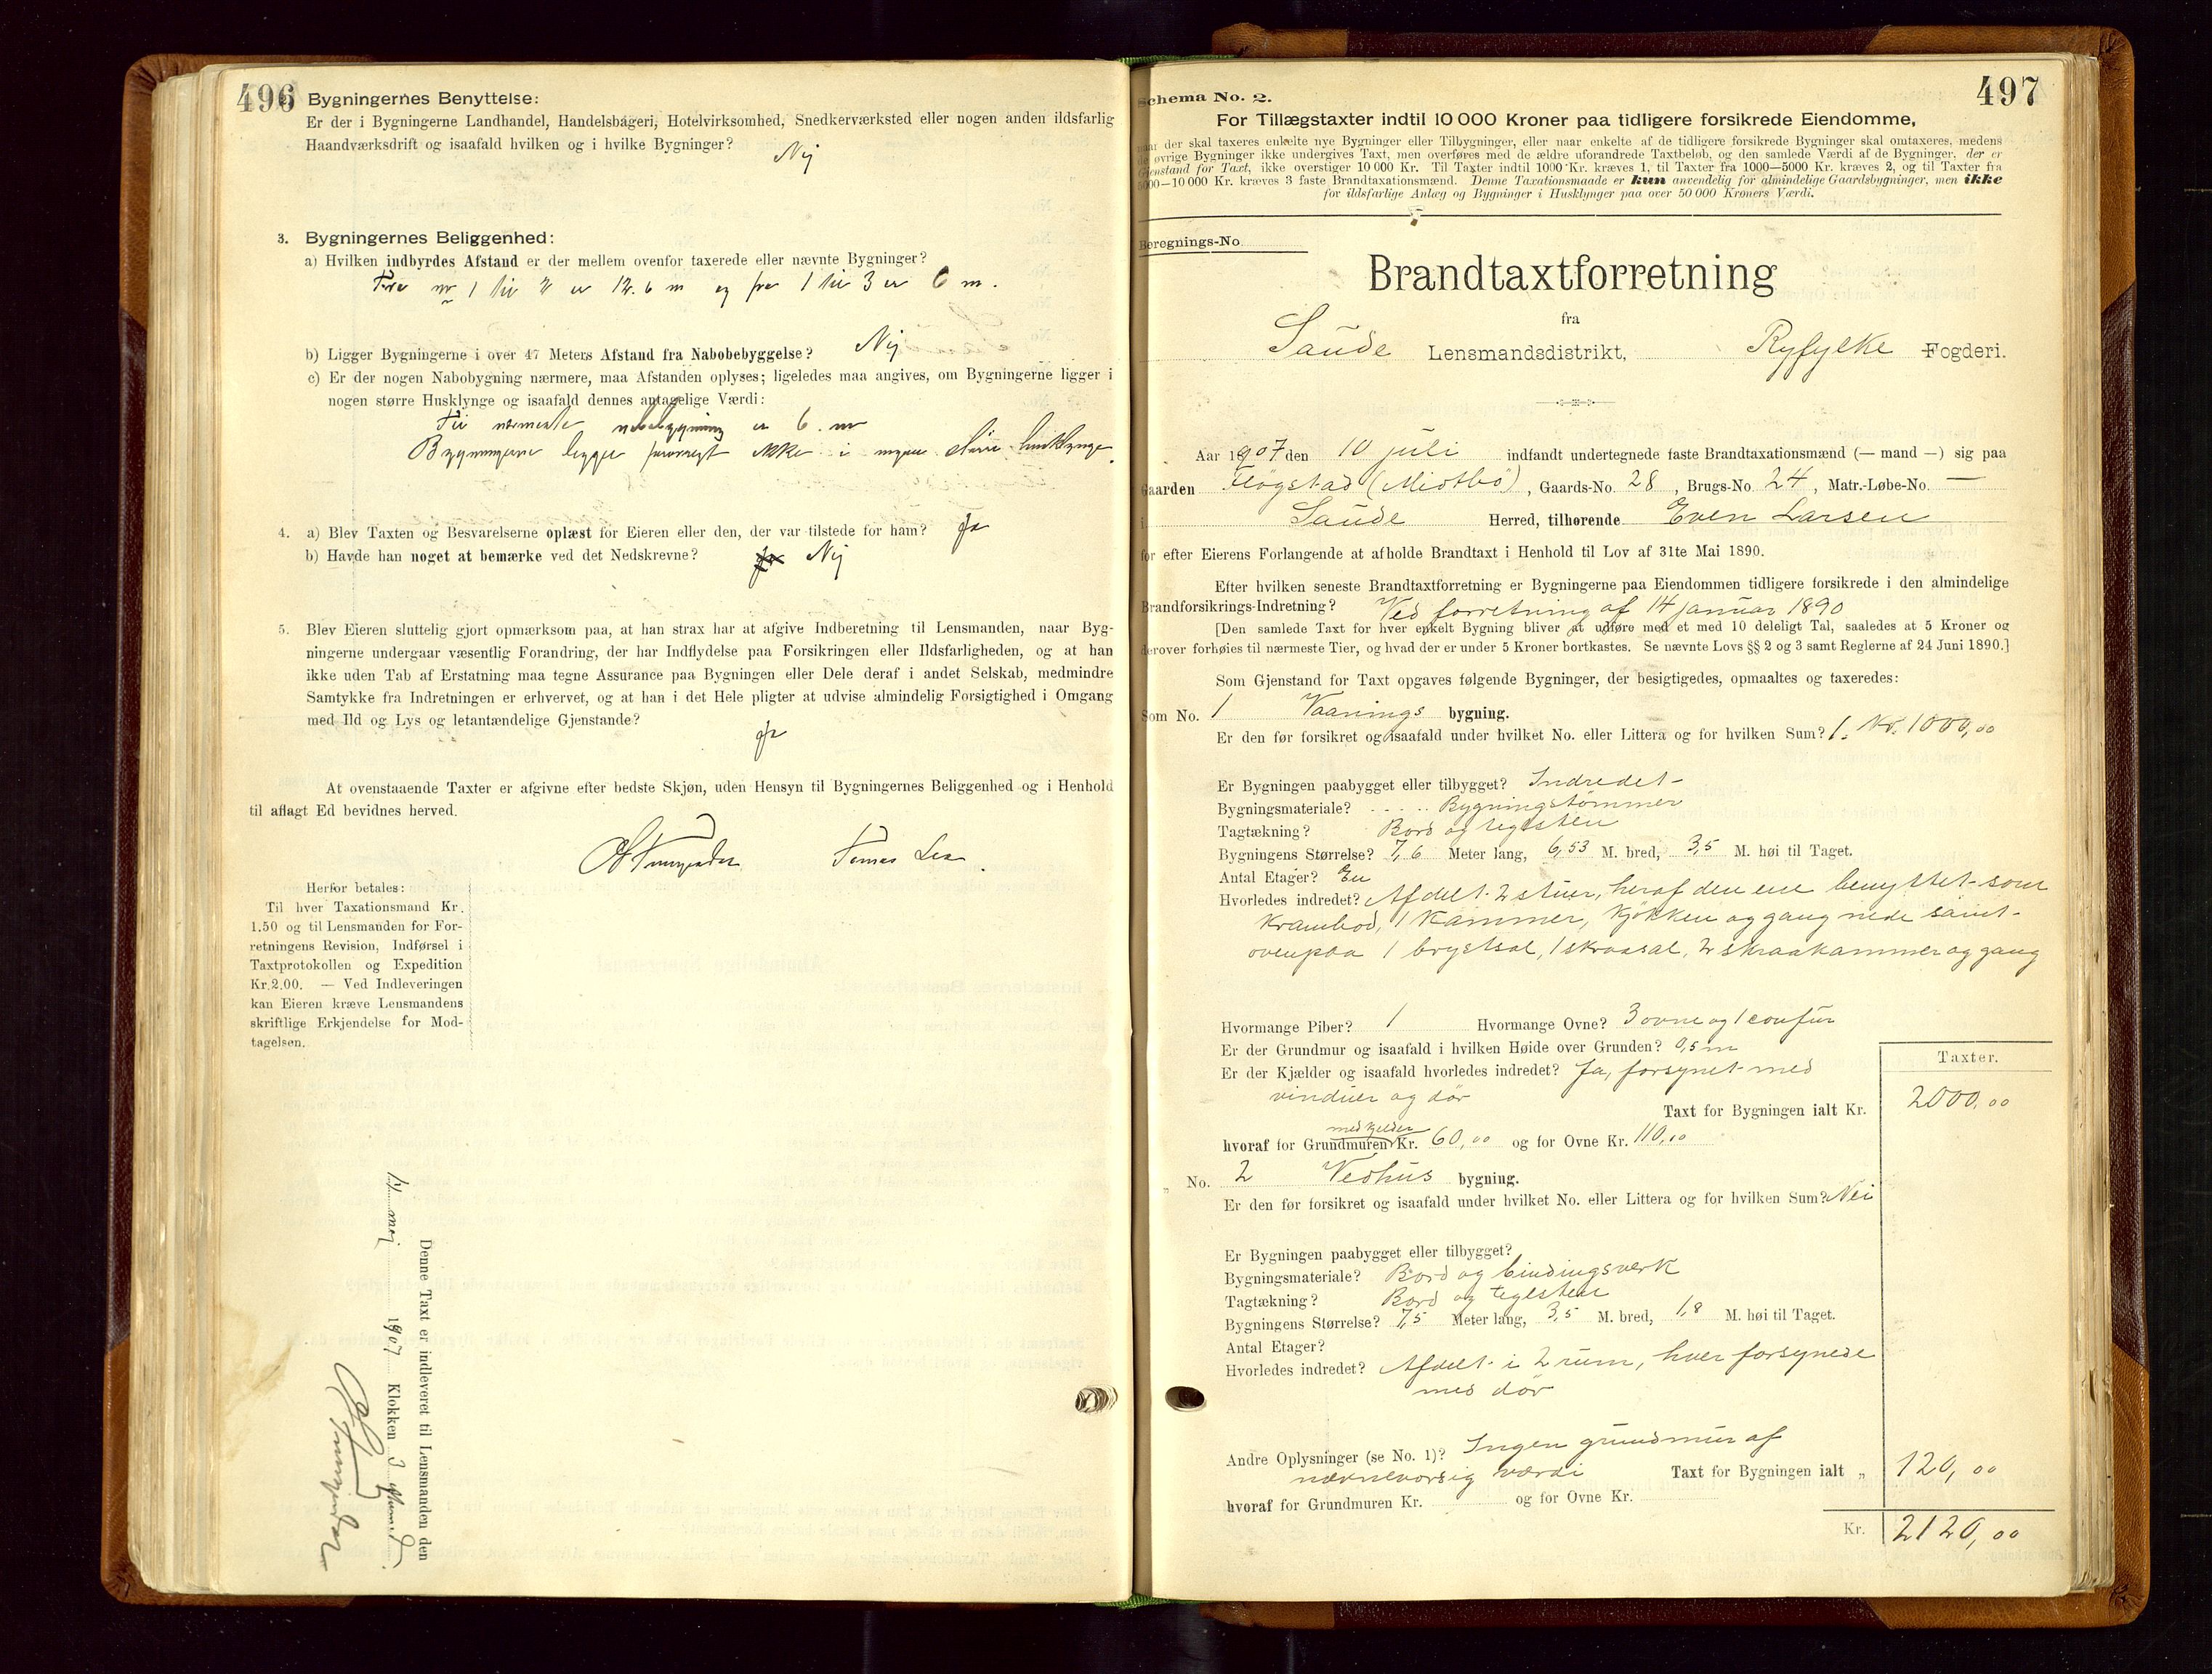 496
Bygningernes Benyttelse:
Er der i Bygningerne Landhandel, Handelsbageri, Hotelvirksomhed, Snedkerværksted eller nogen anden ildsfarlig
Haandværksdrift og isaafald hvilken og i hvilke Bygninger?
Nej
3. Bygningernes Beliggenhed:
a) Hvilken indbyrdes Afstand er der mellem ovenfor taxerede eller nævnte Bygninger?
Fra nr 1 til 2 er 12.6 m og fra 1 til 3 er 6 m.
b) Ligger Bygningerne i over 47 Meters Afstand fra Nabobebyggelse? Nej
c) Er der nogen Nabobygning nærmere, maa Afstanden oplyses; ligeledes maa angives, om Bygningerne ligger i
nogen større Husklynge og isaafald dennes antagelige Værdi:
Til nærmeste nabobygning er 6. m
Bygningerne ligger forøvrigt ikke i nogen større husklynge.
4. a) Blev Taxten og Besvarelserne oplæst for Eieren eller den, der var tilstede for ham? Ja
b) Havde han noget at bemærke ved det Nedskrevne? Ja Nej
5. Blev Eieren sluttelig gjort opmærksom paa, at han strax har at afgive Indberetning til Lensmanden, naar Byg-
ningerne undergaar væsentlig Forandring, der har Indflydelse paa Forsikringen eller Ildsfarligheden, og at han
ikke uden Tab af Erstatning maa tegne Assurance paa Bygningen eller Dele deraf i andet Selskab, medmindre
Samtykke fra Indretningen er erhvervet, og at han i det Hele pligter at udvise almindelig Forsigtighed i Omgang
med Ild og Lys og letantændelige Gjenstande?
Ja
At ovenstaaende Taxter er afgivne efter bedste Skjøn, uden Hensyn til Bygningernes Beliggenhed og i Henhold
til aflagt Ed bevidnes herved.
Tomas Lea
Herfor betales:
Til hver Taxationsmand Kr.
1.50 og til Lensmanden for For-
retningens Revision, Indførsel i
Taxtprotokollen og Expedition
Kr. 2.00. — Ved Indleveringen
kan Eieren kræve Lensmandens
skriftlige Erkjendelse for Mod-
tagelsen.
Denne Taxt er indleveret til Lensmanden den
14 mej 1907 Klokken 3
497
Schema No. 2.
For Tillægstaxter indtil 10 000 Kroner paa tidligere forsikrede Eiendomme,
naar der skal taxeres enkelte nye Bygninger eller Tilbygninger, eller naar enkelte af de tidligere forsikrede Bygninger skal omtaxeres, medens
de øvrige Bygninger ikke undergives Taxt, men overføres med de ældre uforandrede Taxtbeløb, og den samlede Værdi af de Bygninger, der er
Gjenstand for Taxt, ikke overstiger 10 000 Kr. Til Taxter indtil 1000 Kr. kræves 1, til Taxter fra 1000—5000 Kr. kræves 2, og til Taxter fra
5000—10 000 Kr. kræves 3 faste Brandtaxationsmænd. Denne Taxationsmaade er kun anvendelig for almindelige Gaardsbygninger, men ikke
for ildsfarlige Anlæg og Bygninger i Husklynger paa over 50 000 Kroners Værdi.
Beregnings-No
Brandtaxtforretning
fra
Saude Lensmandsdistrikt, Ryfylke Fogderi.
Aar 1907 den 10 juli indfandt undertegnede faste Brandtaxationsmænd (— mand —) sig paa
Gaarden Fløgstad (Midtbø), Gaards-No. 28, Brugs-No. 24, Matr.-Løbe-No. —
i Saude Herred, tilhørende Even Larsen
for efter Eierens Forlangende at afholde Brandtaxt i Henhold til Lov af 31te Mai 1890.
Efter hvilken seneste Brandtaxtforretning er Bygningerne paa Eiendommen tidligere forsikrede i den almindelige
Brandforsikrings-Indretning? Ved forretning af 14 januar 1890
[Den samlede Taxt for hver enkelt Bygning bliver at udføre med et med 10 deleligt Tal, saaledes at 5 Kroner og
derover forhøies til nærmeste Tier, og hvad der er under 5 Kroner bortkastes. Se nævnte Lovs §§ 2 og 3 samt Reglerne af 24 Juni 1890.]
Som Gjenstand for Taxt opgaves følgende Bygninger, der besigtigedes, opmaaltes og taxeredes:
Som No. 1 Vaanings bygning.
Er den før forsikret og isaafald under hvilket No. eller Littera og for hvilken Sum? 1. Kr. 1000,00
Er Bygningen paabygget eller tilbygget? Indredet
Bygningsmateriale? Bygningstømmer
Tagtækning? Bord og teglsten
Bygningens Størrelse? 7,6 Meter lang, 6,53 M. bred, 3,5 M. høi til Taget.
Antal Etager? En
Hvorledes indredet? Afdelt 2 stuer, heraf den ene benyttet som
krambod, 1 kammer, kjøkken og gang nede samt
ovenpaa 1 brystsal, 1 skraasal, 2 skraakammer og gang
Hvormange Piber? 1 Hvormange Ovne? 3 ovne og 1 comfur
Er der Grundmur og isaafald i hvilken Høide over Grunden? 0,5 m
Taxter.
Er der Kjælder og isaafald hvorledes indredet? Ja, forsynet med
vinduer og dør
Taxt for Bygningen ialt Kr. 2000,00
med kjelder
hvoraf for Grundmuren Kr. 60,00 og for Ovne Kr. 110,00
„ No. 2 Vedhus bygning.
Er den før forsikret og isaafald under hvilket No. eller Littera og for hvilken Sum? Nei
Er Bygningen paabygget eller tilbygget?
Bygningsmateriale? Bord og bindingsverk
Tagtækning? Bord og teglsten
Bygningens Størrelse? 7,5 Meter lang, 3,5 M. bred, 1,8 M. høi til Taget.
Antal Etager?
Hvorledes indredet? Afdelt i 2 rum, hver forsynede
med dør
Andre Oplysninger (se No. 1)? Ingen grundmur af
nævneværdig værdi Taxt for Bygningen ialt „ 120,00
hvoraf for Grundmuren Kr. og for Ovne Kr.
Kr. 2120,00